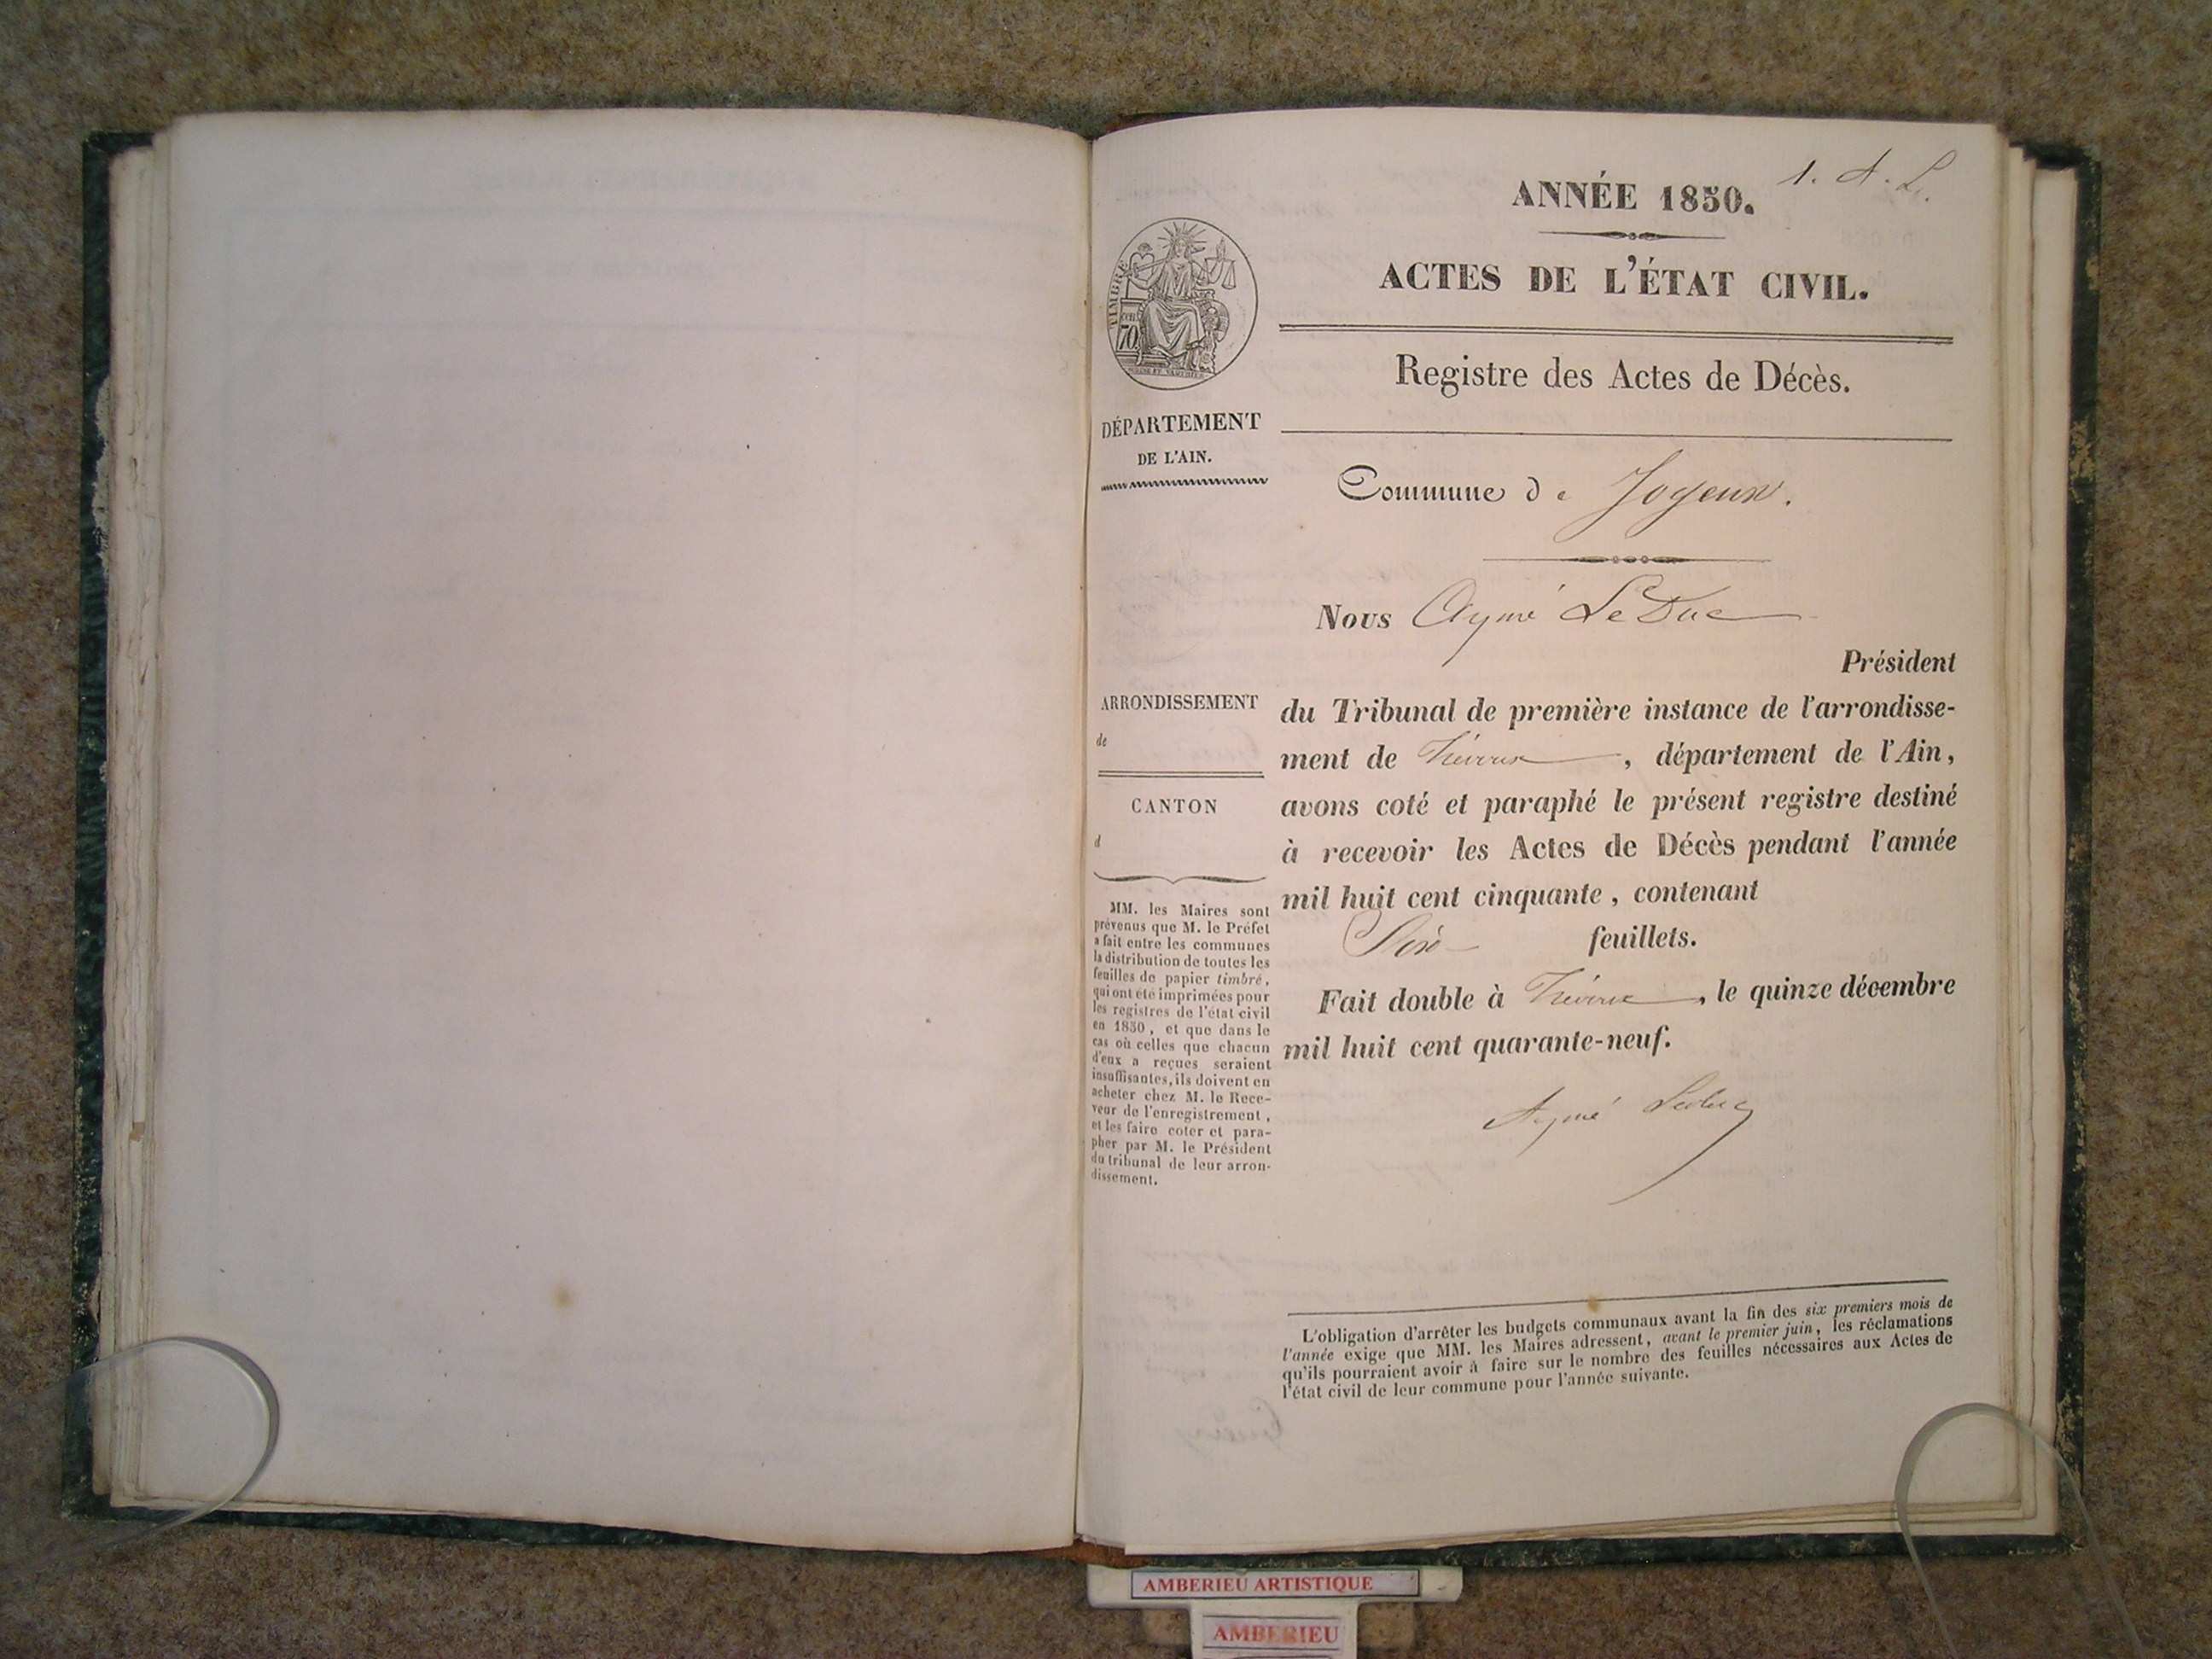 1. A. L.
ANNÉE 1850.
ACTES DE L'ÉTAT CIVIL.
Registre des Actes de Décès.
TIMBRE
70
DÉPARTEMENT
DE L'AIN.
Commune de Joyeux.
Nous Aymé LeDuc
Président
du Tribunal de première instance de l'arrondisse-
ment de Trévoux, département de l'Ain,
avons coté et paraphé le présent registre destiné
à recevoir les Actes de Décès pendant l'année
mil huit cent cinquante, contenant
feuillets.
Fait double à Trévoux, le quinze décembre
mil huit cent quarante-neuf.
Aymé Leduc
ARRONDISSEMENT
de
CANTON
d
MM. les Maires sont
prévenus que M. le Préfet
a fait entre les communes
la distribution de toutes les
feuilles de papier timbré,
qui ont été imprimées pour
les registres de l'état civil
en 1850, et que dans le
cas où celles que chacun
d'eux a reçues seraient
insuffisantes, ils doivent en
acheter chez M. le Rece-
veur de l'enregistrement,
et les faire coter et para-
pher par M. le Président
du tribunal de leur arron-
dissement.
L'obligation d'arrêter les budgets communaux avant la fin des six premiers mois de
l'année exige que MM. les Maires adressent, avant le premier juin, les réclamations
qu'ils pourraient avoir à faire sur le nombre des feuilles nécessaires aux Actes de
l'état civil de leur commune pour l'année suivante.
AMBERIEU ARTISTIQUE
AMBERIEU